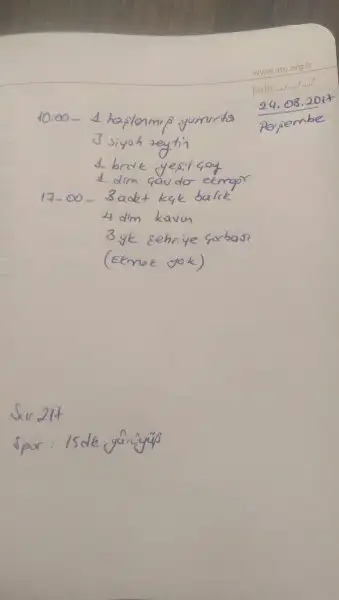 24.08.2017
Perşembe
10:00 - 1 haşlanmış yumurta
3 siyah zeytin
1 bardak yeşil çay
1 dlm çavdar ekmeği
17-00 - 3 adet kçk balık
4 dlm kavun
3 yk şehriye çorbası
(Ekmek yok)
Su: 2lt
Spor: 15dk yürüyüş